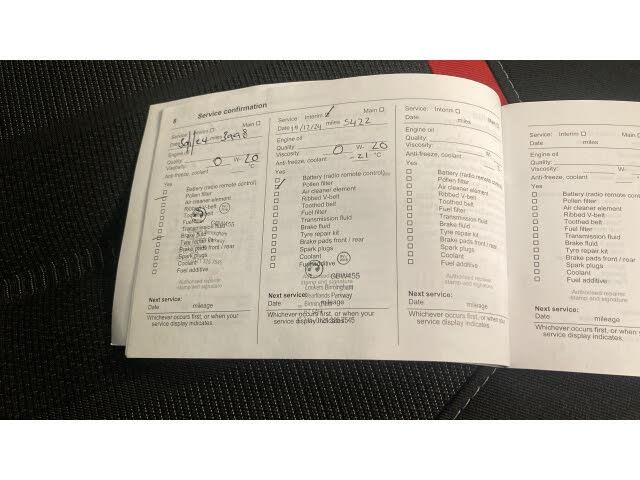 8 Service confirmation
Service: Interim
Date miles
Engine oil
Quality:
Viscosity: 0 W- 20
Anti-freeze, coolant °C
Yes
Battery (radio remote control)
Pollen filter
Air cleaner element
Ribbed V-belt
Toothed belt
Fuel filter
Transmission fluid
Brake fluid
Tyre repair kit
Brake pads front / rear
Spark plugs
Coolant
Fuel additive
Authorised repairer
stamp and signature
Next service:
Date mileage
Whichever occurs first, or when your
service display indicates.
Service: Interim Main
Date 19/12/24 miles 5422
Engine oil
Quality:
Viscosity: 0 W- 20
Anti-freeze, coolant -21 °C
Yes
Battery (radio remote control)
Pollen filter
Air cleaner element
Ribbed V-belt
Toothed belt
Fuel filter
Transmission fluid
Brake fluid
Tyre repair kit
Brake pads front / rear
Spark plugs
Coolant
Fuel additive
GBW455
Authorised repairer
stamp and signature
Lookers Birmingham
Heartlands Parkway
Next service:
Date mileage
Whichever occurs first, or when your
service display indicates.
Service: Interim Main
Date miles
Engine oil
Quality:
Viscosity: W-
Anti-freeze, coolant °C
Yes
Battery (radio remote control)
Pollen filter
Air cleaner element
Ribbed V-belt
Toothed belt
Fuel filter
Transmission fluid
Brake fluid
Tyre repair kit
Brake pads front / rear
Spark plugs
Coolant
Fuel additive
Authorised repairer
stamp and signature
Next service:
Date mileage
Whichever occurs first, or when your
service display indicates.
Service: Interim Main
Date miles
Engine oil
Quality:
Viscosity:
Anti-freeze, coolant
Yes
Battery (radio remote
Pollen filter
Air cleaner element
Ribbed V-belt
Toothed belt
Fuel filter
Transmission fluid
Brake fluid
Tyre repair kit
Brake pads front / rear
Spark plugs
Coolant
Fuel additive
Authorised repairer
stamp and signature
Next service:
Date mileage
Whichever occurs first, or when your
service display indicates.